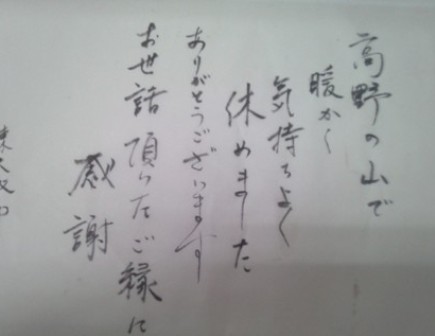 高野の山で
暖かく
気持ちよく
休めました
ありがとうございます
お世話頂いたご縁に
感謝